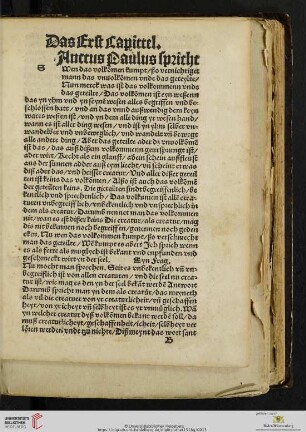 Das Erst Capittel.
Anctus Paulus spricht
S Wen das volkomen kumpt, so vernichtiget
man das vnuolkomen vnde das geteylte,
Nun merck was ist das volkommenn vnde
das geteilte, Das volkomen ist eyn wesenn
das yn yhm vnd yn seynē wesen alles begriffen vnd be-
schlossen hatt, vnd an das vnnd auswendigk dem keyn
wares wesen ist, vnd yn dem alle ding yr wesen hand,
wann es ist aller ding wesen, vnd ist yn yhm selber vn
wandelber vnd vnbeweglich, vnd wandelt vn̄ bewegt
alle andere ding, Aber das geteilte ader dz vnuolkomē
ist das, das aus dissem volkommenn geursprungt ist,
ader wirt, Recht als ein glanst, ader schein ausfleüst
aus der sunnen adder aus eym liecht, vn̄ scheint etwas
diß ader das, vnd heisset creatur, Vnd aller disser geteil
ten ist keins das volkomen, Also ist auch das volkomē
der geteilten keins, Die geteilten sind begreifflich, be-
kentlich vnd sprechlich, Das volkomen ist allē crea-
turen vnbegreiflich, vnd vnbekentlich vnd vnsprechlich in
dem als creatur, Darumb nennet man das volkommen
nit, wan es ist diser keins Die creatur, als creatur, mag
dis nit bekennen noch begreiffen, genennen noch geden
cken. Nu wen das volkomen kumpt, so verschmecht
man das geteilte, Wē kumpt es aber? Ich sprich wenn
es als ferre als muglich ist bekennet wirt vnd enpfunden vnd
geschmeckt wirt in der seel. Eyn Frag,
Nu mocht man sprechen. Seit es vnbekentlich vn̄ vn-
begreifflich ist von allen creaturen, vnd die seel nu crea-
tur ist, wie mag es den yn der sel bekāt werdē Antwort
Darumb spricht man yn dem als creatur, das meyneth
als vil die creatuer von yr creatuerlicheit, vn̄ geschaffen
heyt, von yr icheyt vn̄ selbheyt ist es yr vnmuglich. Wā
yn welcher creatur dyß volkōmen bekant werdē soll, da
muß creaturlicheyt, geschaffenheit, icheit, selbheyt ver
loren werden vnde zu nichte, Diß meynt das wort sant
B